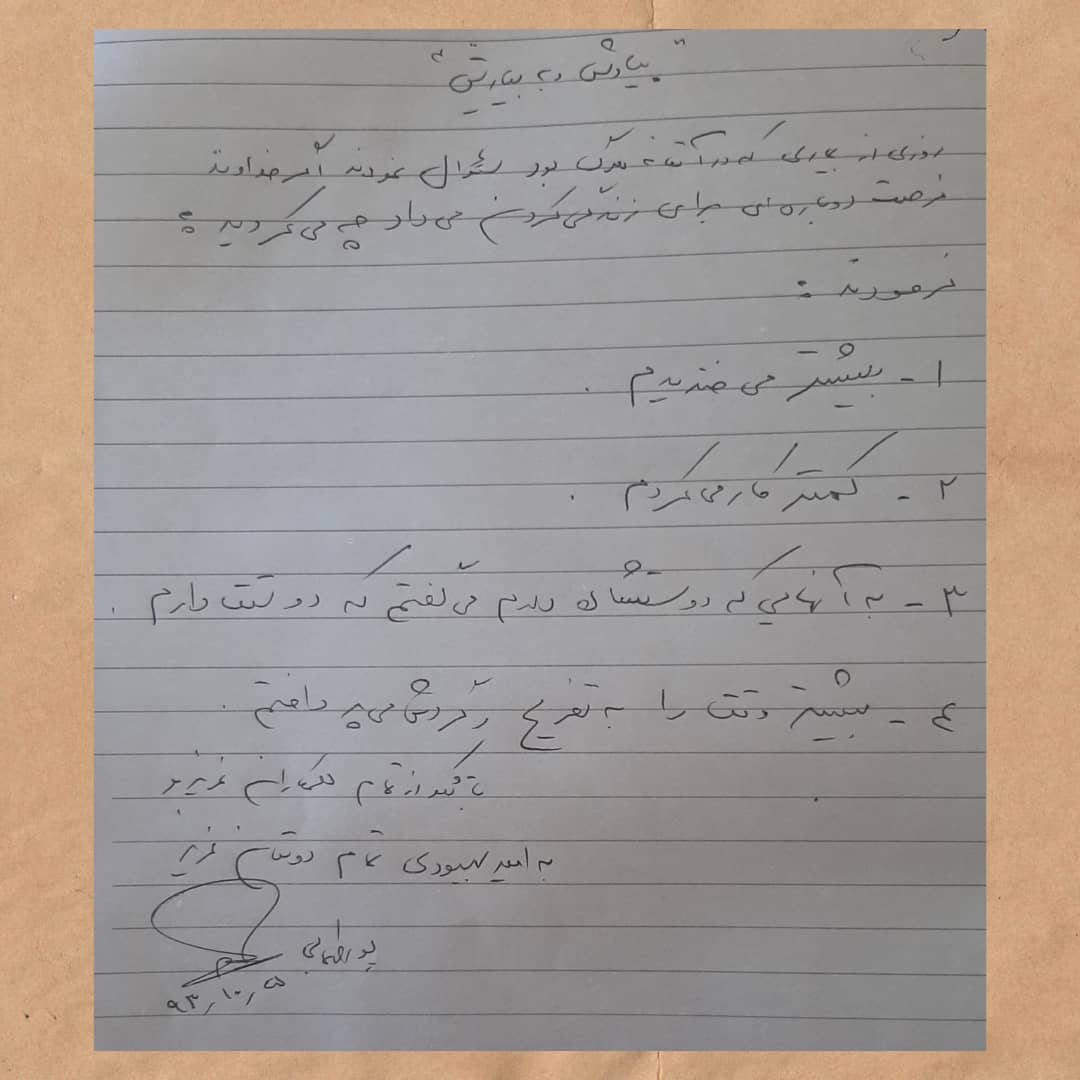 روزی از بیماری که در آستانه مرگ بود سئوال نمودند اگر خداوند
فرصت دوباره ای برای زندگی کردن می داد چه می کردید ؟
فرمودند :
۱ - بیشتر می خندیدم .
۲ - کمتر کار می کردم .
۳ - به آنهایی که دوستشان دارم می گفتم که دوستت دارم .
۴ - بیشتر وقت را به تفریح و گردش می پرداختم .
با تشکر از تمام همکاران عزیز
به امید بهبودی تمام دوستان عزیز
۹۳٫۱۰٫۵